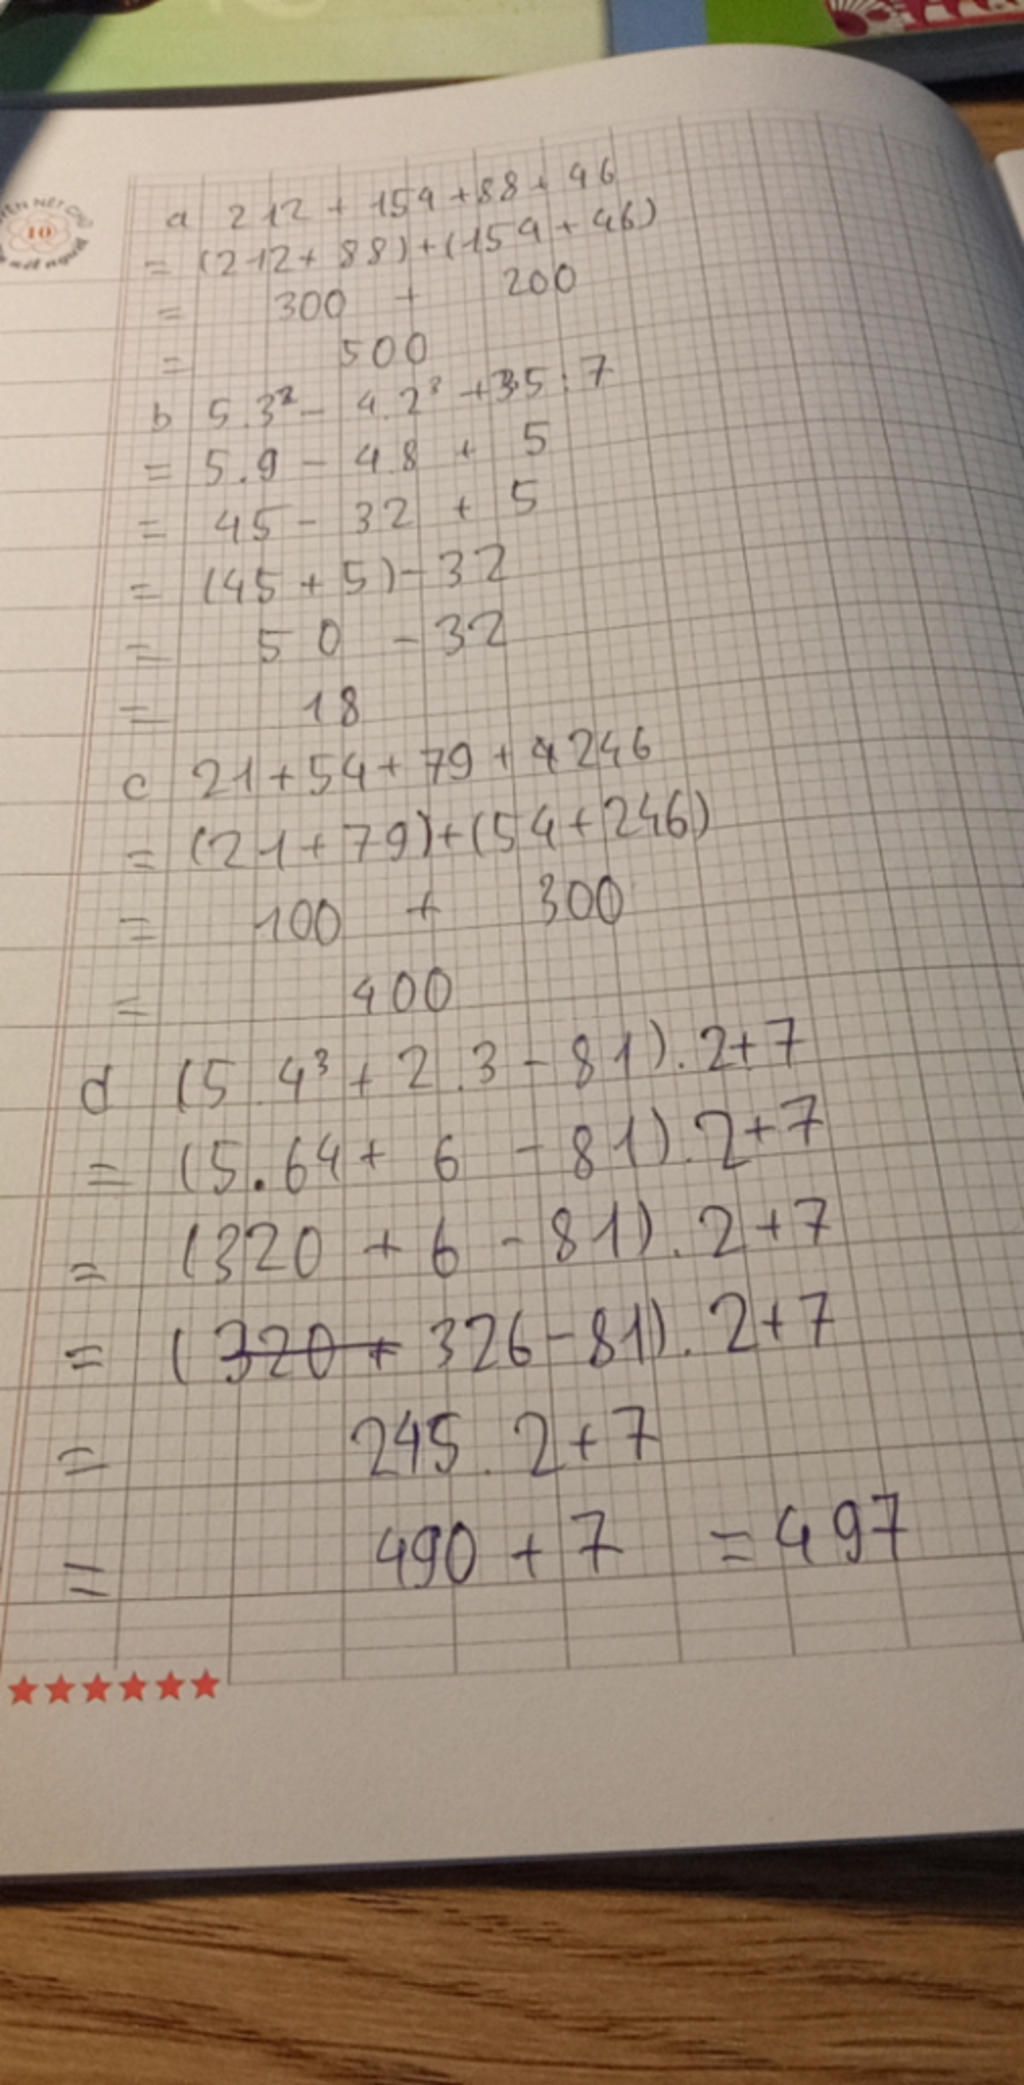 LUYỆN NÉT CHỮ
10
nết người
a 212 + 154 + 88 + 46
= (212 + 88) + (154 + 46)
= 300 + 200
= 500
b 5.3² - 4.2³ + 35 : 7
= 5.9 - 4.8 + 5
= 45 - 32 + 5
= (45 + 5) - 32
= 50 - 32
= 18
c 21 + 54 + 79 + 246
= (21 + 79) + (54 + 246)
= 100 + 300
= 400
d (5.4³ + 2.3 - 81).2 + 7
= (5.64 + 6 - 81).2 + 7
= (320 + 6 - 81).2 + 7
= (320 + 326 - 81).2 + 7
= 245.2 + 7
= 490 + 7 = 497